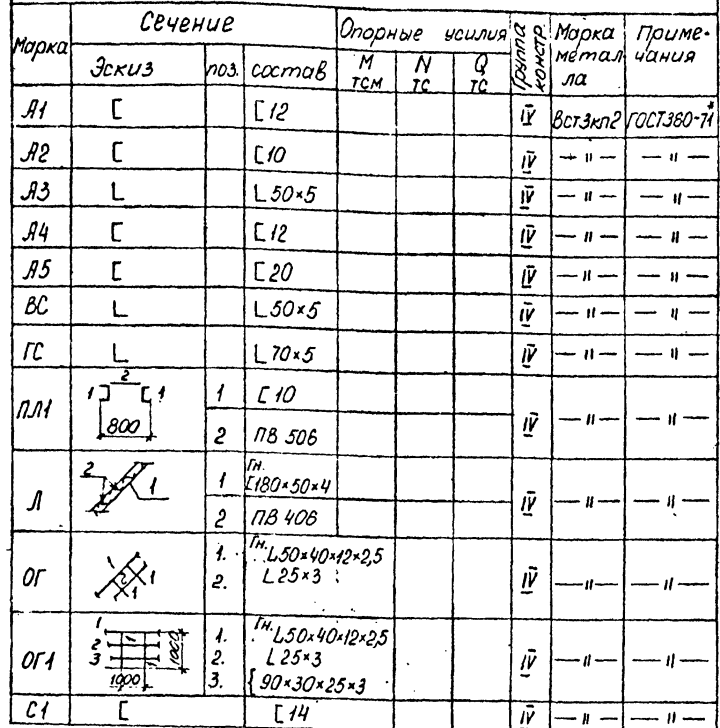 Марка Сечение Опорные усилия Группа констр. Марка металла Приме-чания
Эскиз поз. состав М тсм N тс Q тс
А1 [ [12 IV Вст3кп2 ГОСТ380-71*
А2 [ [10 IV — 〃 — — 〃 —
А3 L L50×5 IV — 〃 — — 〃 —
А4 [ [12 IV — 〃 — — 〃 —
А5 [ [20 IV — 〃 — — 〃 —
ВС L L50×5 IV — 〃 — — 〃 —
ГС L L70×5 IV — 〃 — — 〃 —
ПЛ1 1 2 1 800 1 [10 IV — 〃 — — 〃 —
2 ПВ 506
Л 2 1 1 Гн. [180×50×4 IV — 〃 — — 〃 —
2 ПВ 406
ОГ 1 2 1 1 1. Гн. L50×40×12×2,5 IV — 〃 — — 〃 —
2. L25×3
ОГ1 1 2 3 1 1 1000 1000 1. Гн. L50×40×12×2,5 IV — 〃 — — 〃 —
2. L25×3
3. { 90×30×25×3
С1 [ [14 IV — 〃 — — 〃 —